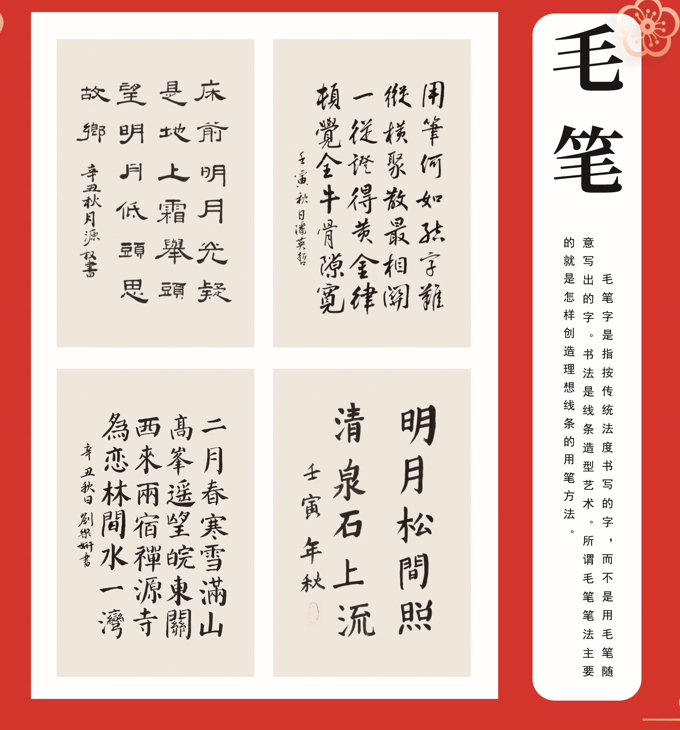 毛笔
毛笔字是指按传统法度书写的字,而不是用毛笔随
意写出的字。书法是线条造型艺术。所谓毛笔笔法主要
的就是怎样创造理想线条的用笔方法。
用筆何如結字難
縱橫聚散最相關
一從證得黄金律
頓覺全牛骨隙寬
壬寅秋日潘英哲
床前明月光疑
是地上霜舉頭
望明月低頭思
故鄉
辛丑秋月源書
明月松間照
清泉石上流
壬寅年秋
二月春寒雪滿山
髙峯遥望皖東關
西來兩宿禪源寺
為恋林間水一灣
辛丑秋日劉樂妍書